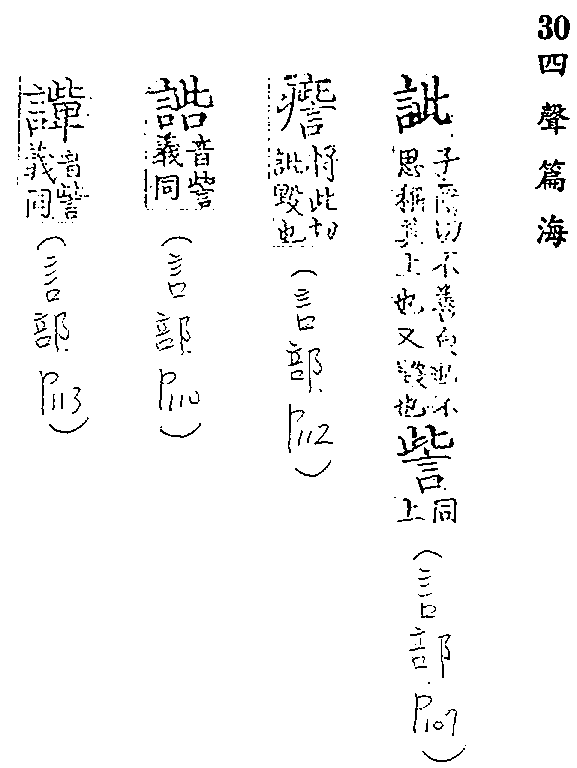 30 四聲篇海
訿
子爾切不善皃訿不
思稱其上也又毀也
訾
同
上
(言部 P107)
將此切
訿毀也
(言部 P112)
音訾
義同
(言部 P110)
音訾
義同
(言部 P113)